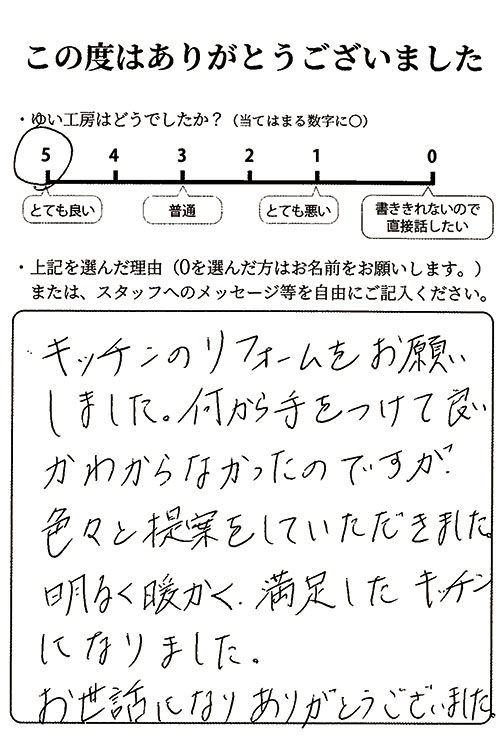 この度はありがとうございました
・ゆい工房はどうでしたか？（当てはまる数字に〇）
5 4 3 2 1 0
とても良い 普通 とても悪い 書ききれないので直接話したい
・上記を選んだ理由（0を選んだ方はお名前をお願いします。）
または、スタッフへのメッセージ等を自由にご記入ください。
キッチンのリフォームをお願い
しました。何から手をつけて良い
かわからなかったのですが、
色々と提案をしていただきました。
明るく暖かく、満足したキッチン
になりました。
お世話になりありがとうございました。